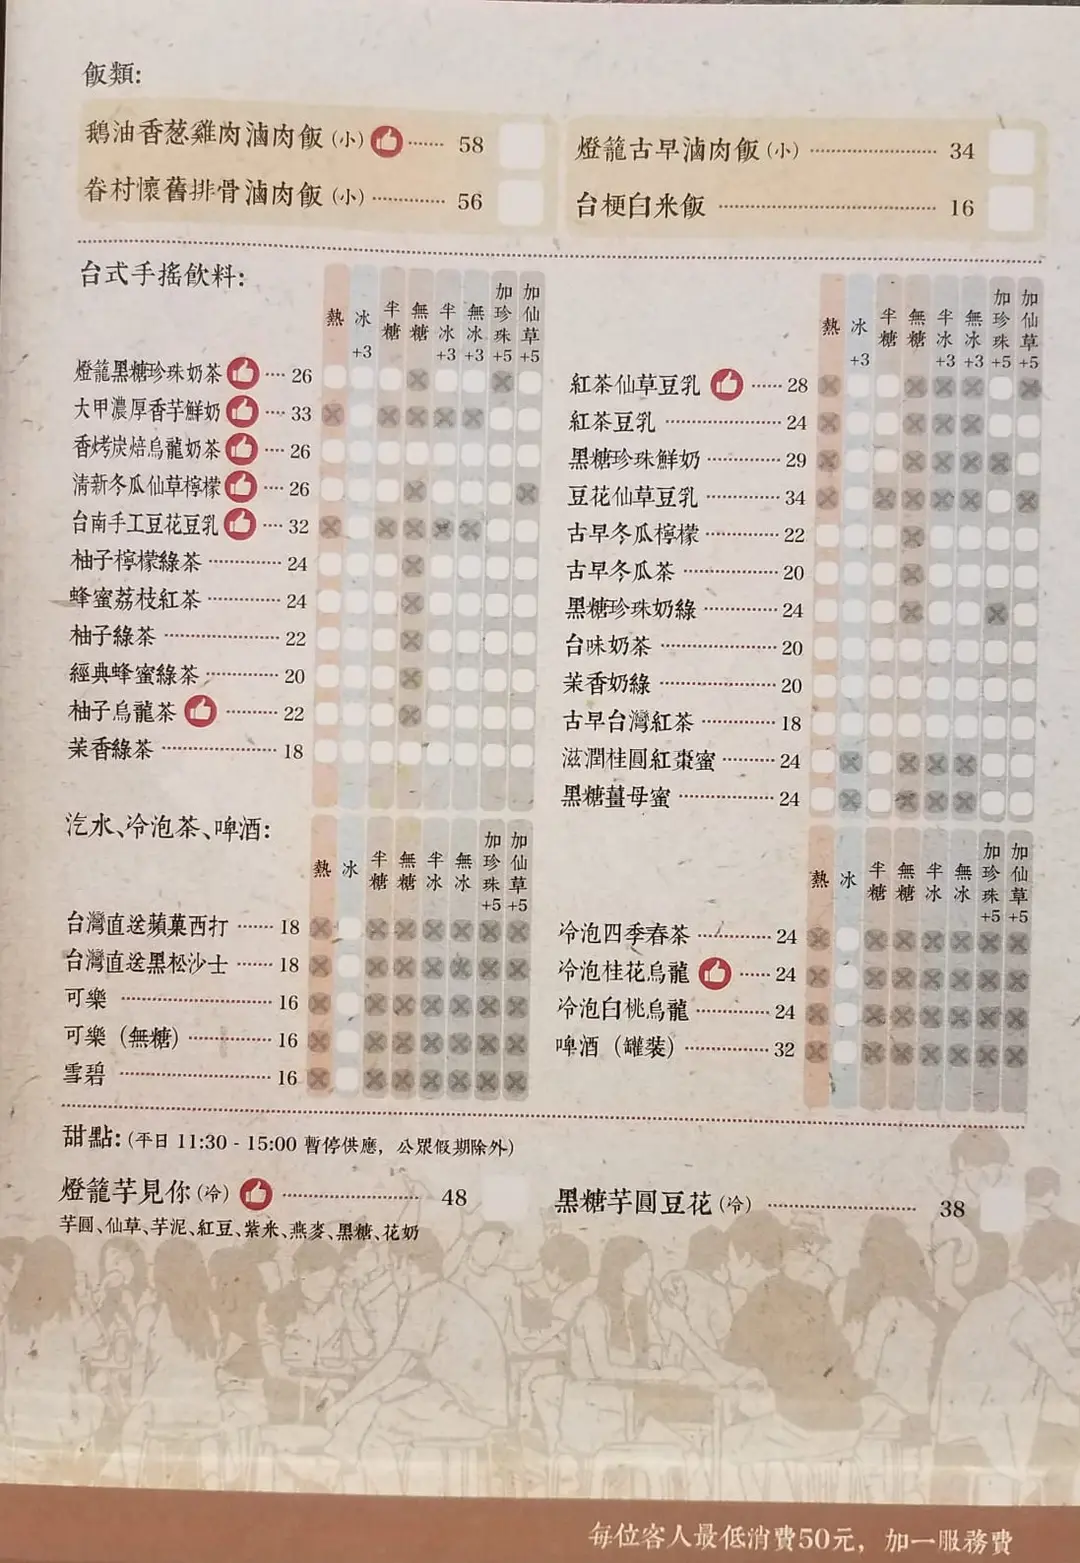 飯類:
鵝油香葱雞肉滷肉飯 (小) ...... 58
眷村懷舊排骨滷肉飯 (小) ............ 56
燈籠古早滷肉飯 (小) .................. 34
台梗白米飯 .............................. 16
台式手搖飲料:
熱 冰+3 半糖 無糖 半冰+3 無冰+3 加珍珠+5 加仙草+5
燈籠黑糖珍珠奶茶 ... 26
大甲濃厚香芋鮮奶 .... 33
香烤炭焙烏龍奶茶 ... 26
清新冬瓜仙草檸檬 ... 26
台南手工豆花豆乳 .... 32
柚子檸檬綠茶 ............ 24
蜂蜜荔枝紅茶 ............ 24
柚子綠茶 .................. 22
經典蜂蜜綠茶 ............ 20
柚子烏龍茶 ......... 22
茉香綠茶 .................. 18
熱 冰+3 半糖 無糖 半冰+3 無冰+3 加珍珠+5 加仙草+5
紅茶仙草豆乳 ..... 28
紅茶豆乳 .................. 24
黑糖珍珠鮮奶 ............ 29
豆花仙草豆乳 ............ 34
古早冬瓜檸檬 ............ 22
古早冬瓜茶 ............... 20
黑糖珍珠奶綠 ............ 24
台味奶茶 .................. 20
茉香奶綠 .................. 20
古早台灣紅茶 ............ 18
滋潤桂圓紅棗蜜 ......... 24
黑糖薑母蜜 ............... 24
汽水、冷泡茶、啤酒:
熱 冰 半糖 無糖 半冰 無冰 加珍珠+5 加仙草+5
台灣直送蘋菓西打 ...... 18
台灣直送黑松沙士 ...... 18
可樂 ........................ 16
可樂（無糖） ............ 16
雪碧 ........................ 16
熱 冰 半糖 無糖 半冰 無冰 加珍珠+5 加仙草+5
冷泡四季春茶 ............ 24
冷泡桂花烏龍 ..... 24
冷泡白桃烏龍 ............ 24
啤酒（罐装） ............ 32
甜點: (平日 11:30 - 15:00 暫停供應，公眾假期除外)
燈籠芋見你 (冷) .................. 48
芋圓、仙草、芋泥、紅豆、紫米、燕麥、黑糖、花奶
黑糖芋圓豆花 (冷) .................. 38
每位客人最低消費50元，加一服務費